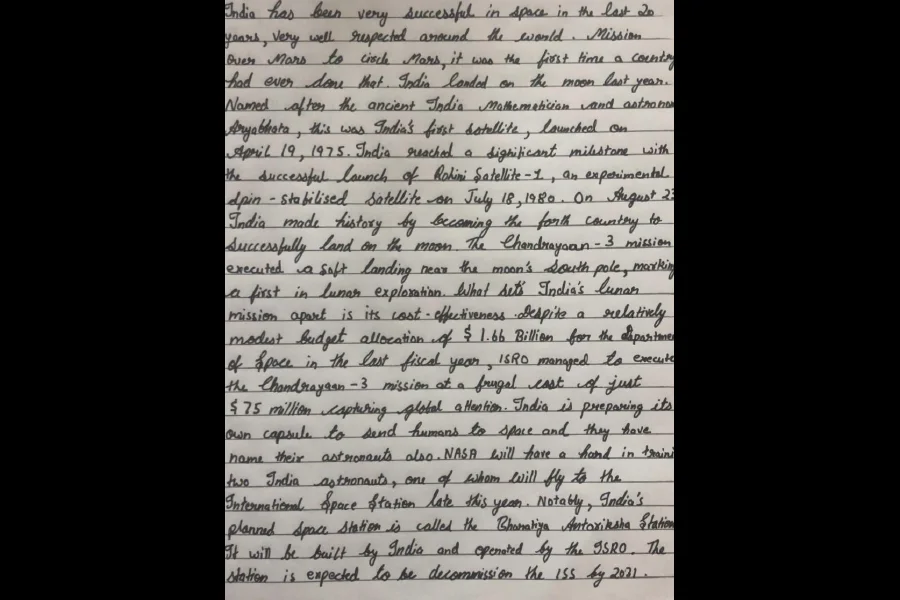 India has been very successful in space in the last 20
years, very well respected around the world. Mission
over Mars to circle Mars, it was the first time a country
had ever done that. India landed on the moon last year.
Named after the ancient India Mathematician and astronom
Aryabhata, this was India's first satellite, launched on
April 19, 1975. India reached a significant milestone with
the successful launch of Rohini Satellite-1, an experimental
spin-stabilised satellite on July 18, 1980. On August 23
India made history by becoming the forth country to
successfully land on the moon. The Chandrayaan-3 mission
executed a soft landing near the moon's south pole, marking
a first in lunar exploration. What sets India's lunar
mission apart is its cost-effectiveness. Despite a relatively
modest budget allocation of $ 1.66 Billion for the departmen
of Space in the last fiscal year, ISRO managed to execute
the Chandrayaan-3 mission at a frugal cost of just
$ 75 million capturing global attention. India is preparing its
own capsule to send humans to space and they have
name their astronauts also. NASA will have a hand in traini
two India astronauts, one of whom will fly to the
International Space Station late this year. Notably, India's
planned space station is called the Bharatiya Antariksha Station
It will be built by India and operated by the ISRO. The
station is expected to be decommission the ISS by 2031.